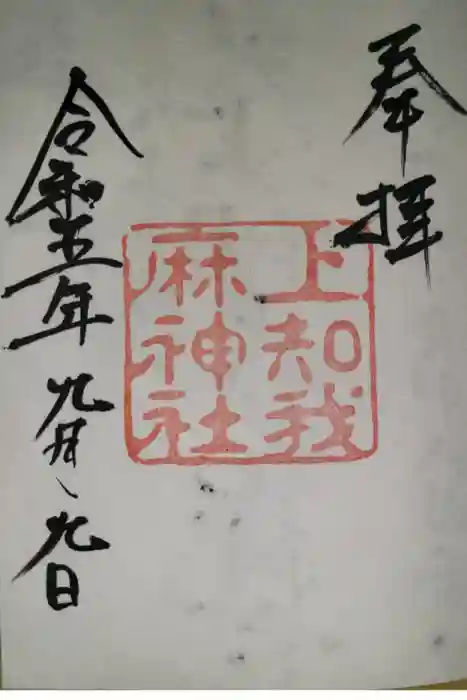 奉拝
上知我
麻神社
令和五年九月九日